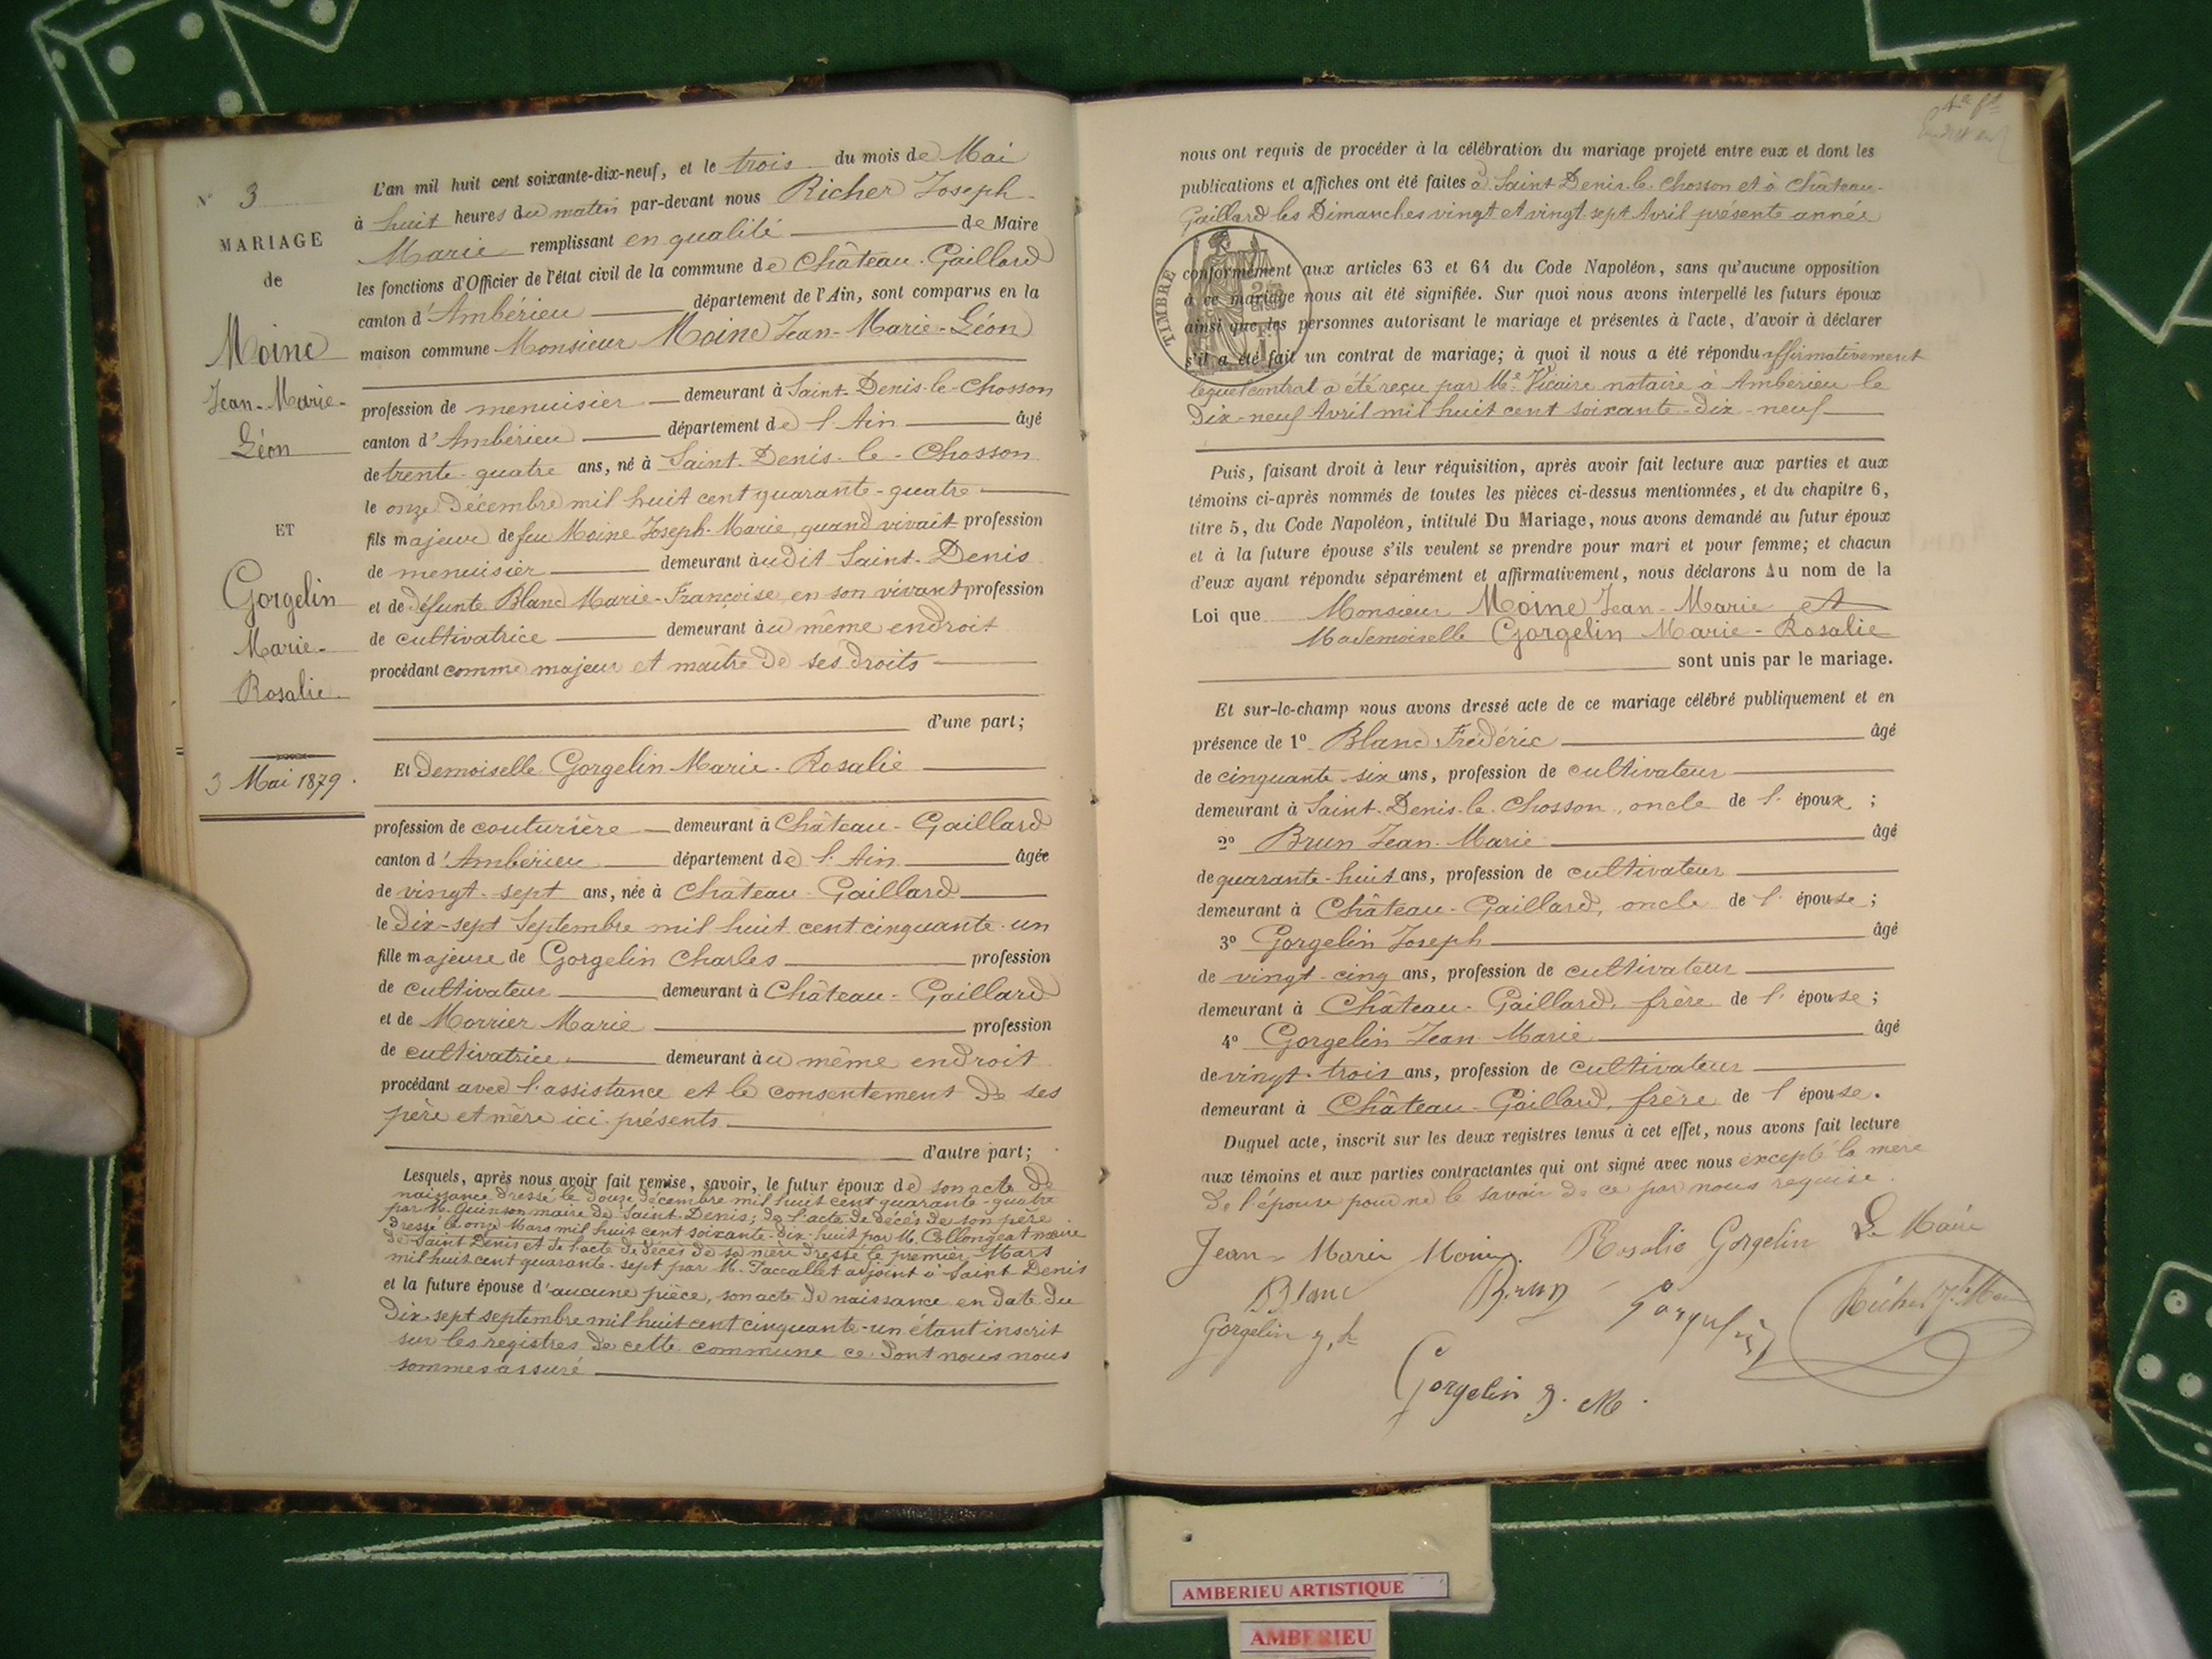 N° 3
MARIAGE
de
Moine
Jean-Marie-
Léon
ET
Gorgelin
Marie-
Rosalie
3 Mai 1879.
L'an mil huit cent soixante-dix-neuf, et le trois du mois de Mai
à huit heures du matin par-devant nous Richer Joseph-
Marie remplissant en qualité de Maire
les fonctions d'Officier de l'état civil de la commune de Château-Gaillard
canton d'Ambérieu département de l'Ain, sont comparus en la
maison commune Monsieur Moine Jean-Marie-Léon
profession de menuisier demeurant à Saint-Denis-le-Chosson
canton d'Ambérieu département de l'Ain âgé
de trente-quatre ans, né à Saint-Denis-le-Chosson
le onze Décembre mil huit cent quarante-quatre
fils majeur de feu Moine Joseph-Marie, quand vivait profession
de menuisier demeurant audit Saint-Denis
et de défunte Blanc Marie-Françoise, en son vivant profession
de cultivatrice demeurant au même endroit
procédant comme majeur et maître de ses droits
d'une part;
Et Demoiselle Gorgelin Marie-Rosalie
profession de couturière demeurant à Château-Gaillard
canton d'Ambérieu département de l'Ain âgée
de vingt-sept ans, née à Château-Gaillard
le dix-sept Septembre mil huit cent cinquante-un
fille majeure de Gorgelin Charles profession
de cultivateur demeurant à Château-Gaillard
et de Morrier Marie profession
de cultivatrice demeurant au même endroit
procédant avec l'assistance et le consentement de ses
père et mère ici présents
d'autre part;
Lesquels, après nous avoir fait remise, savoir, le futur époux de son acte de
naissance dressé le douze décembre mil huit cent quarante-quatre
par M. Guinson maire de Saint-Denis; de l'acte de décès de son père
dressé le onze Mars mil huit cent soixante-dix-huit par M. Collongeat maire
de Saint Denis et de l'acte de décès de sa mère dressé le premier Mars
mil huit cent quarante-sept par M. Taccallet adjoint à Saint-Denis
et la future épouse d'aucune pièce, son acte de naissance en date du
dix-sept septembre mil huit cent cinquante-un étant inscrit
sur les registres de cette commune ce dont nous nous
sommes assuré
nous ont requis de procéder à la célébration du mariage projeté entre eux et dont les
publications et affiches ont été faites à Saint-Denis-le-Chosson et à Château-
Gaillard les Dimanches vingt et vingt-sept Avril présente année
TIMBRE
conformément aux articles 63 et 64 du Code Napoléon, sans qu'aucune opposition
à ce mariage nous ait été signifiée. Sur quoi nous avons interpellé les futurs époux
ainsi que les personnes autorisant le mariage et présentes à l'acte, d'avoir à déclarer
s'il a été fait un contrat de mariage; à quoi il nous a été répondu affirmativement
lequel contrat a été reçu par Me Vicaire notaire à Ambérieu le
Dix-neuf Avril mil huit cent soixante-dix-neuf
Puis, faisant droit à leur réquisition, après avoir fait lecture aux parties et aux
témoins ci-après nommés de toutes les pièces ci-dessus mentionnées, et du chapitre 6,
titre 5, du Code Napoléon, intitulé Du Mariage, nous avons demandé au futur époux
et à la future épouse s'ils veulent se prendre pour mari et pour femme; et chacun
d'eux ayant répondu séparément et affirmativement, nous déclarons Au nom de la
Loi que Monsieur Moine Jean-Marie et
Mademoiselle Gorgelin Marie-Rosalie
sont unis par le mariage.
Et sur-le-champ nous avons dressé acte de ce mariage célébré publiquement et en
présence de 1° Blanc Frédéric âgé
de cinquante-six ans, profession de cultivateur
demeurant à Saint-Denis-le-Chosson, oncle de l'époux;
2° Brun Jean-Marie âgé
de quarante-huit ans, profession de cultivateur
demeurant à Château-Gaillard, oncle de l'épouse;
3° Gorgelin Joseph âgé
de vingt-cinq ans, profession de cultivateur
demeurant à Château-Gaillard, frère de l'épouse;
4° Gorgelin Jean Marie âgé
de vingt-trois ans, profession de cultivateur
demeurant à Château-Gaillard, frère de l'épouse.
Duquel acte, inscrit sur les deux registres tenus à cet effet, nous avons fait lecture
aux témoins et aux parties contractantes qui ont signé avec nous excepté la mère
de l'épouse pour ne le savoir de ce par nous requise.
Jean-Marie Moine Rosalie Gorgelin Le Maire
Blanc Brun Gorgelin Richer
Gorgelin
Gorgelin J. M.
AMBERIEU ARTISTIQUE
AMBERIEU